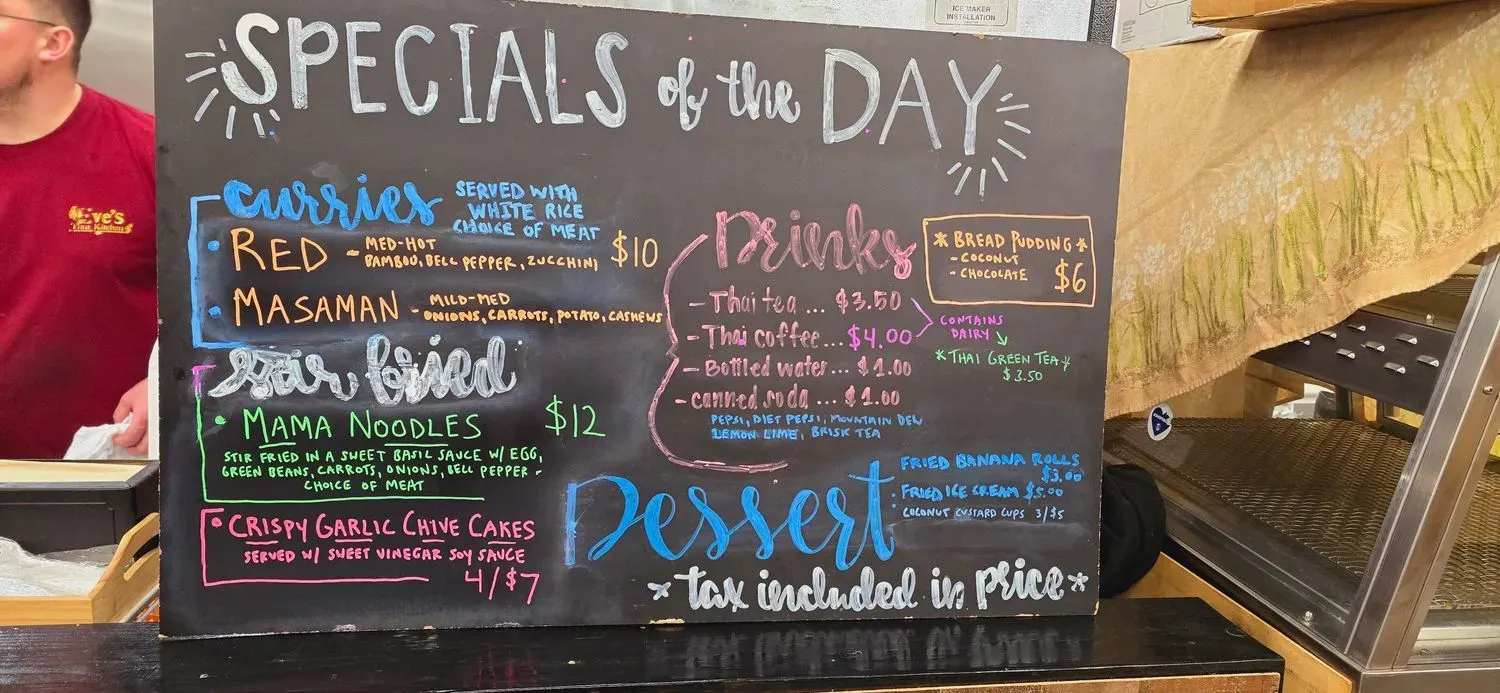 ICE MAKER
INSTALLATION
SPECIALS of the DAY
curries
SERVED WITH
WHITE RICE
CHOICE OF MEAT
• RED - MED-HOT
BAMBOO, BELL PEPPER, ZUCCHINI
$10
• MASAMAN - MILD-MED
ONIONS, CARROTS, POTATO, CASHEWS
stir fried
• MAMA NOODLES $12
STIR FRIED IN A SWEET BASIL SAUCE W/ EGG,
GREEN BEANS, CARROTS, ONIONS, BELL PEPPER -
CHOICE OF MEAT
• CRISPY GARLIC CHIVE CAKES
SERVED W/ SWEET VINEGAR SOY SAUCE
4/$7
Drinks
- Thai tea ... $3.50
- Thai coffee ... $4.00
CONTAINS
DAIRY
* THAI GREEN TEA *
$3.50
- Bottled water ... $1.00
- canned soda ... $1.00
PEPSI, DIET PEPSI, MOUNTAIN DEW
LEMON LIME, BRISK TEA
* BREAD PUDDING *
- COCONUT
- CHOCOLATE $6
Dessert
FRIED BANANA ROLLS
$3.00
• FRIED ICE CREAM $5.00
• COCONUT CUSTARD CUPS 3/$5
* tax included in price *
ve's
Thai Kitchen